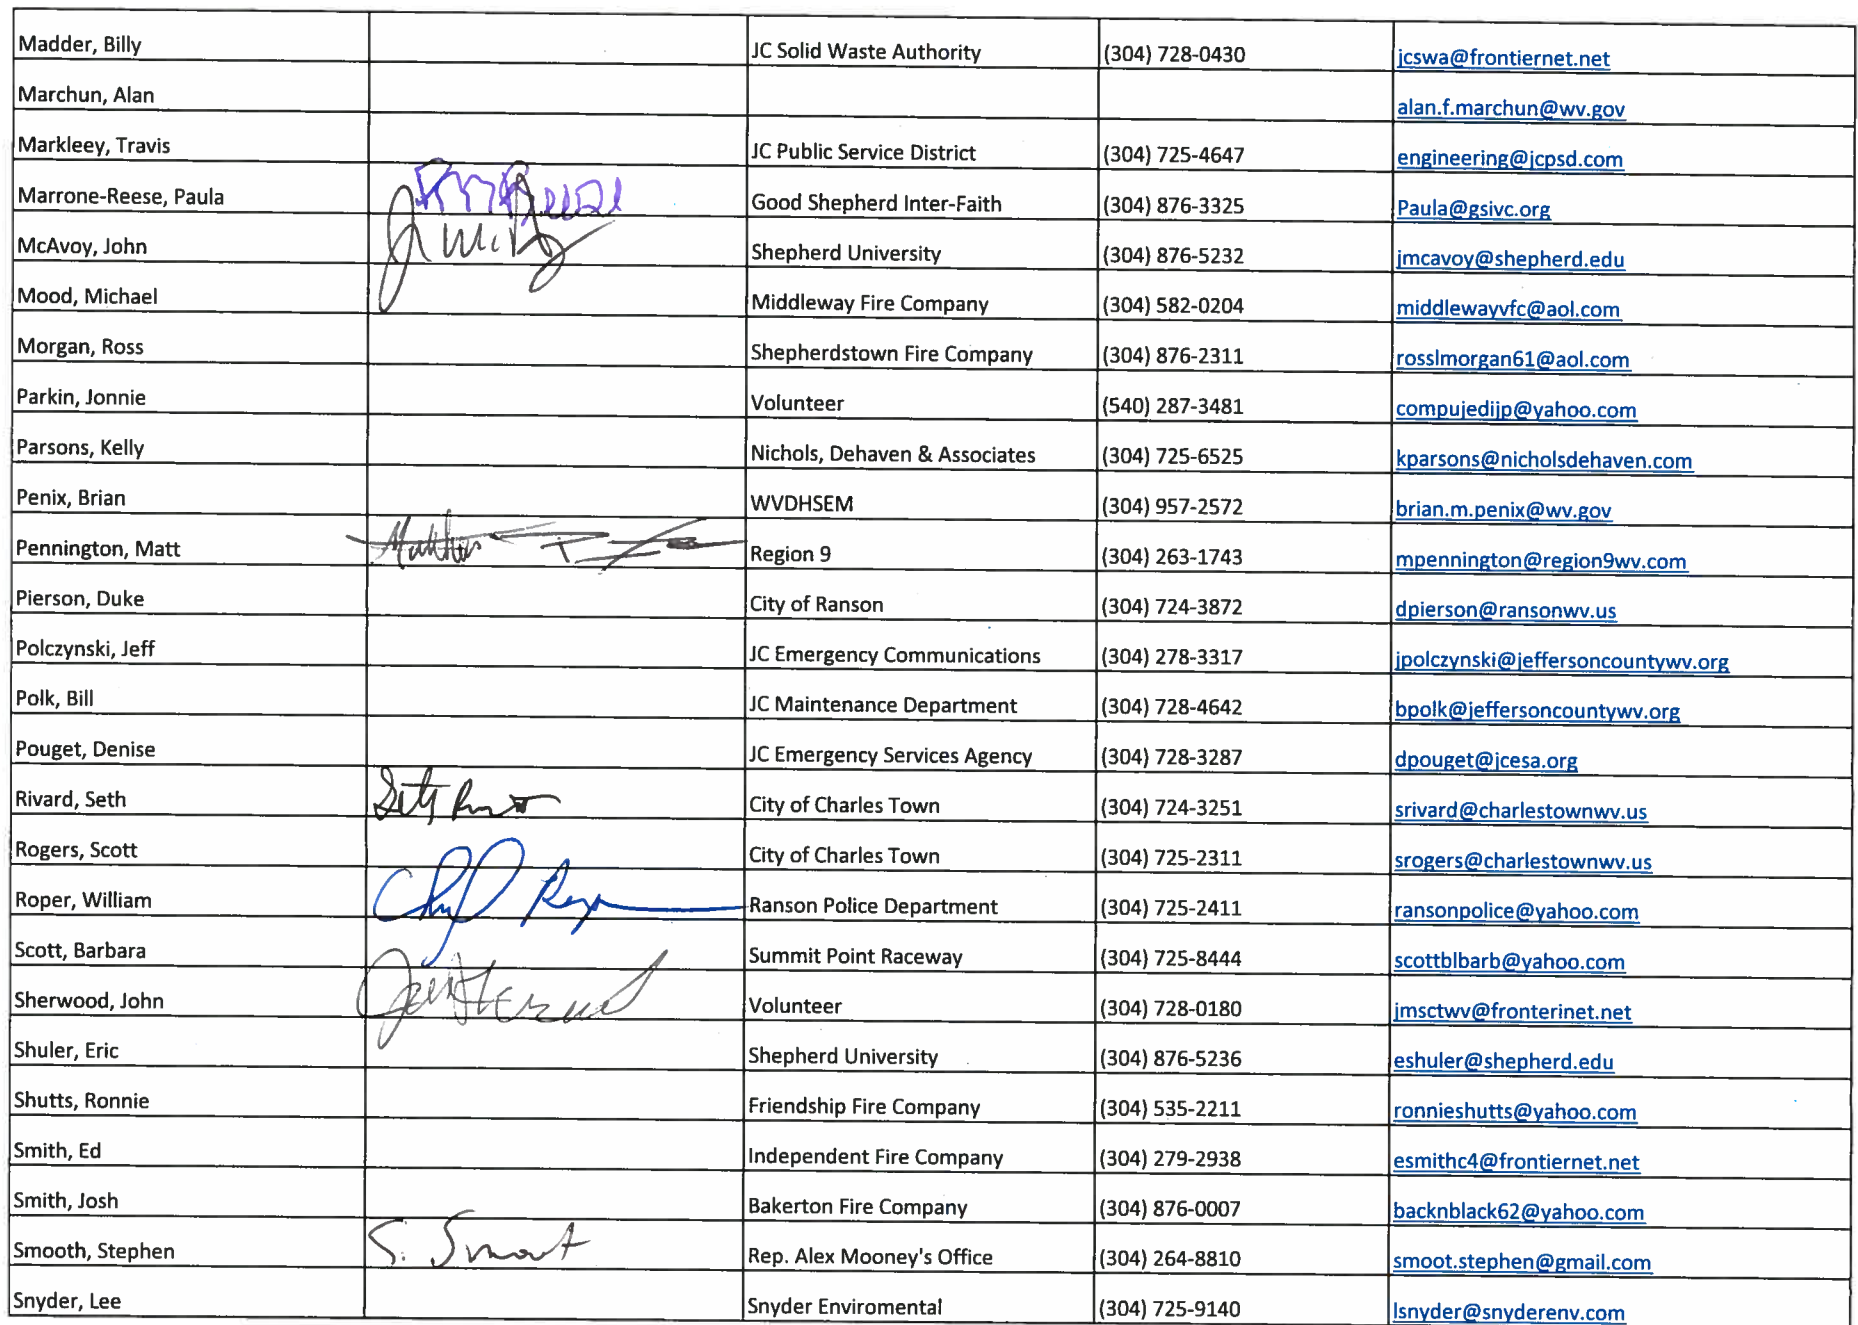 Madder, Billy JC Solid Waste Authority (304) 728-0430 jcswa@frontiernet.net
Marchun, Alan alan.f.marchun@wv.gov
Markleey, Travis JC Public Service District (304) 725-4647 engineering@jcpsd.com
Marrone-Reese, Paula PMReese Good Shepherd Inter-Faith (304) 876-3325 Paula@gsivc.org
McAvoy, John Shepherd University (304) 876-5232 jmcavoy@shepherd.edu
Mood, Michael Middleway Fire Company (304) 582-0204 middlewayvfc@aol.com
Morgan, Ross Shepherdstown Fire Company (304) 876-2311 rosslmorgan61@aol.com
Parkin, Jonnie Volunteer (540) 287-3481 compujedijp@yahoo.com
Parsons, Kelly Nichols, Dehaven & Associates (304) 725-6525 kparsons@nicholsdehaven.com
Penix, Brian WVDHSEM (304) 957-2572 brian.m.penix@wv.gov
Pennington, Matt Region 9 (304) 263-1743 mpennington@region9wv.com
Pierson, Duke City of Ranson (304) 724-3872 dpierson@ransonwv.us
Polczynski, Jeff JC Emergency Communications (304) 278-3317 jpolczynski@jeffersoncountywv.org
Polk, Bill JC Maintenance Department (304) 728-4642 bpolk@jeffersoncountywv.org
Pouget, Denise JC Emergency Services Agency (304) 728-3287 dpouget@jcesa.org
Rivard, Seth Seth City of Charles Town (304) 724-3251 srivard@charlestownwv.us
Rogers, Scott City of Charles Town (304) 725-2311 srogers@charlestownwv.us
Roper, William Ranson Police Department (304) 725-2411 ransonpolice@yahoo.com
Scott, Barbara Summit Point Raceway (304) 725-8444 scottblbarb@yahoo.com
Sherwood, John Volunteer (304) 728-0180 jmsctwv@fronterinet.net
Shuler, Eric Shepherd University (304) 876-5236 eshuler@shepherd.edu
Shutts, Ronnie Friendship Fire Company (304) 535-2211 ronnieshutts@yahoo.com
Smith, Ed Independent Fire Company (304) 279-2938 esmithc4@frontiernet.net
Smith, Josh Bakerton Fire Company (304) 876-0007 backnblack62@yahoo.com
Smooth, Stephen S. Smoot Rep. Alex Mooney's Office (304) 264-8810 smoot.stephen@gmail.com
Snyder, Lee Snyder Enviromental (304) 725-9140 lsnyder@snyderenv.com